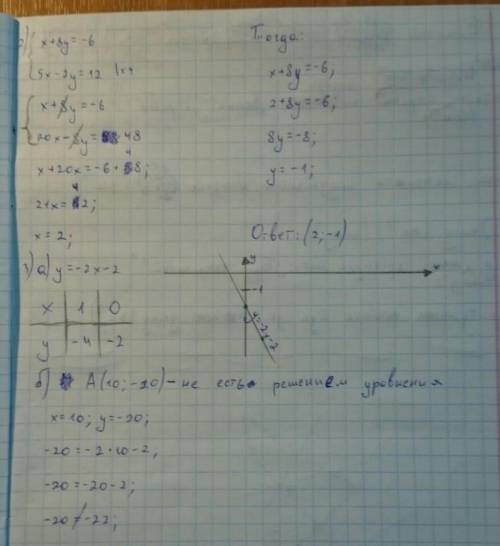 x+8y=-6
5x-2y=12 |×4
x+8y=-6
20x-8y=48
x+20x=-6+48;
21x=42;
x=2;
Тогда:
x+8y=-6;
2+8y=-6;
8y=-8;
y=-1;
Ответ: (2;-1)
а) y=-2x-2
x 1 0
y -4 -2
y
x
-1
y=-2x-2
б) A(10;-20) - не есть решением уровнения
x=10; y=-20;
-20=-2·10-2;
-20=-20-2;
-20≠-22;